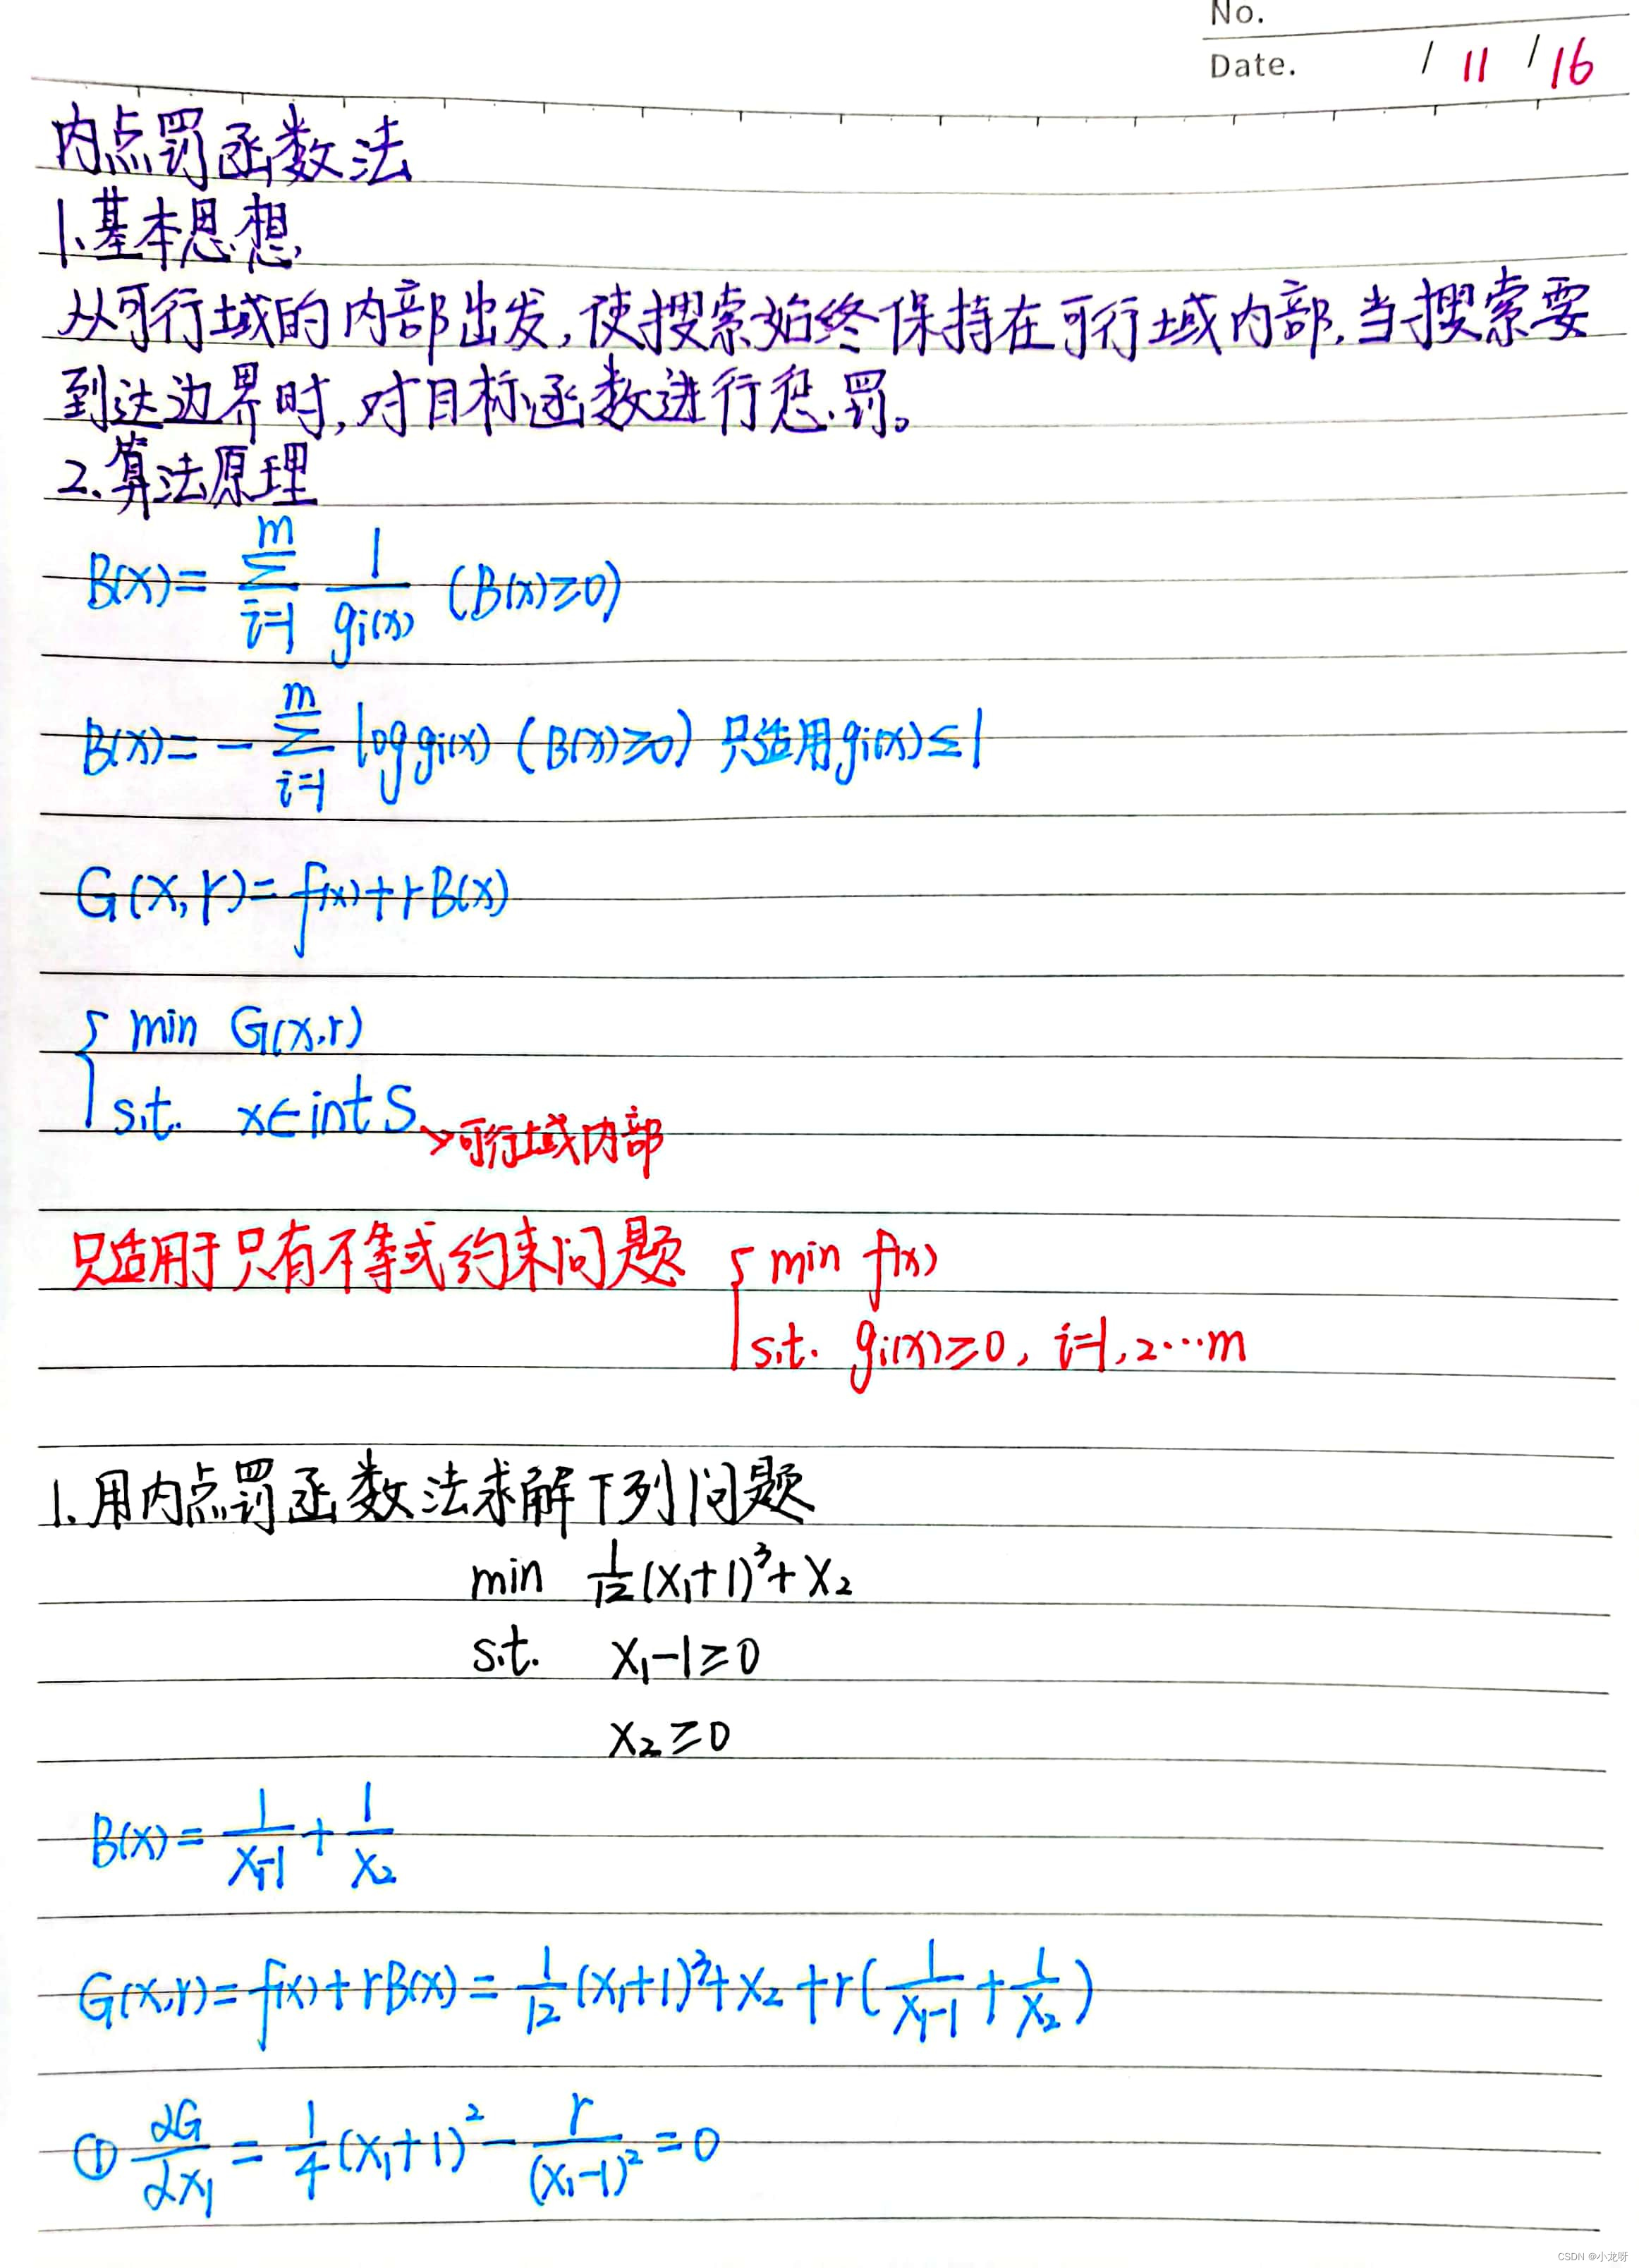 No.
Date. / 11 / 16
内点罚函数法
1.基本思想
从可行域的内部出发,使搜索始终保持在可行域内部,当搜索要
到达边界时,对目标函数进行惩罚。
2.算法原理
B(x)= \sum_{i=1}^{m} \frac{1}{g_i(x)} (B(x)≥0)
B(x)= - \sum_{i=1}^{m} log g_i(x) (B(x)≥0) 只适用g_i(x)≤1
G(x,r)=f(x)+rB(x)
{ min G(x,r)
s.t. x∈int S →可行域内部
只适用于只有不等式约束问题 { min f(x)
s.t. g_i(x)≥0, i=1,2…m
1.用内点罚函数法求解下列问题
min \frac{1}{12}(x_1+1)^3+x_2
s.t. x_1-1≥0
x_2≥0
B(x)= \frac{1}{x_1-1}+\frac{1}{x_2}
G(x,r)=f(x)+rB(x)= \frac{1}{12}(x_1+1)^3+x_2+r(\frac{1}{x_1-1}+\frac{1}{x_2})
① \frac{∂G}{∂x_1}= \frac{1}{4}(x_1+1)^2-\frac{r}{(x_1-1)^2}=0
CSDN @小龙呀